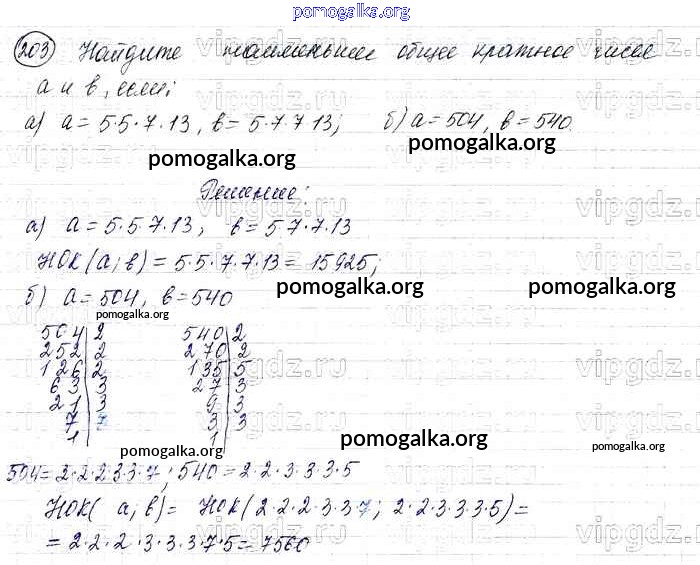 pomogalka.org
203 Найдите наименьшее общее кратное чисел
a и в, если;
а) a = 5·5·7·13, в = 5·7·7·13; б) a = 504, в = 540.
pomogalka.org
pomogalka.org
Решение:
а) a = 5·5·7·13, в = 5·7·7·13
НОК(a; в) = 5·5·7·7·13 = 15925;
б) a = 504, в = 540
pomogalka.org
pomogalka.org
pomogalka.org
504|2 540|2
252|2 270|2
126|2 135|5
63|3 27|3
21|3 9|3
7|7 3|3
1| 1|
pomogalka.org
pomogalka.org
pomogalka.org
504 = 2·2·2·3·3·7; 540 = 2·2·3·3·3·5
НОК(a; в) = НОК(2·2·2·3·3·7; 2·2·3·3·3·5) =
= 2·2·2·3·3·3·7·5 = 7560
vipgdz.ru
vipgdz.ru
vipgdz.ru